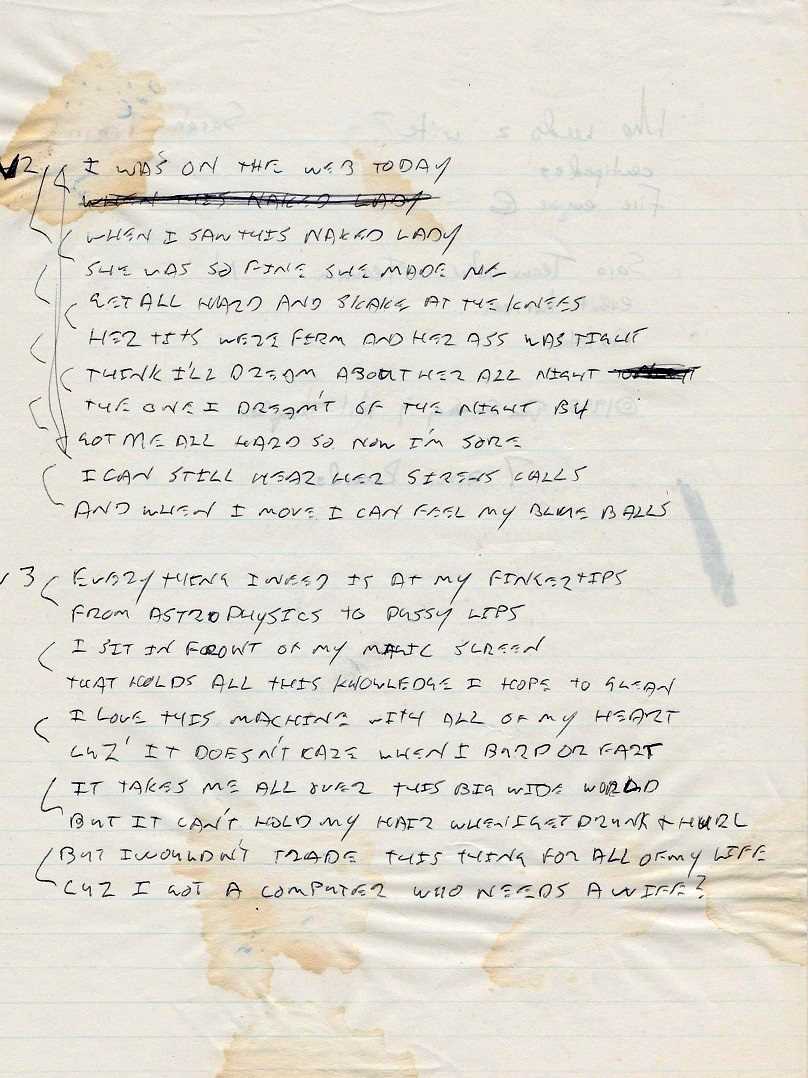 V2 I WAS ON THE WEB TODAY
WHEN THIS NAKED LADY
WHEN I SAW THIS NAKED LADY
SHE WAS SO FINE SHE MADE ME
GET ALL HARD AND SHAKE AT THE KNEES
HER TITS WERE FIRM AND HER ASS WAS TIGHT
THINK I'LL DREAM ABOUT HER ALL NIGHT
THE ONE I DREAM'T OF THE NIGHT B4
GOT ME ALL HARD SO NOW I'M SORE
I CAN STILL HEAR HER SIRENS CALLS
AND WHEN I MOVE I CAN FEEL MY BLUE BALLS
V3 EVERYTHING I NEED IS AT MY FINGERTIPS
FROM ASTROPHYSICS TO PUSSY LIPS
I SIT IN FRONT OF MY MAGIC SCREEN
THAT HOLDS ALL THIS KNOWLEDGE I HOPE TO GLEAN
I LOVE THIS MACHINE WITH ALL OF MY HEART
CUZ' IT DOESN'T CARE WHEN I BURP OR FART
IT TAKES ME ALL OVER THIS BIG WIDE WORLD
BUT IT CAN'T HOLD MY HAIR WHEN I GET DRUNK & HURL
BUT I WOULDN'T TRADE THIS THING FOR ALL OF MY LIFE
CUZ I GOT A COMPUTER WHO NEEDS A WIFE?